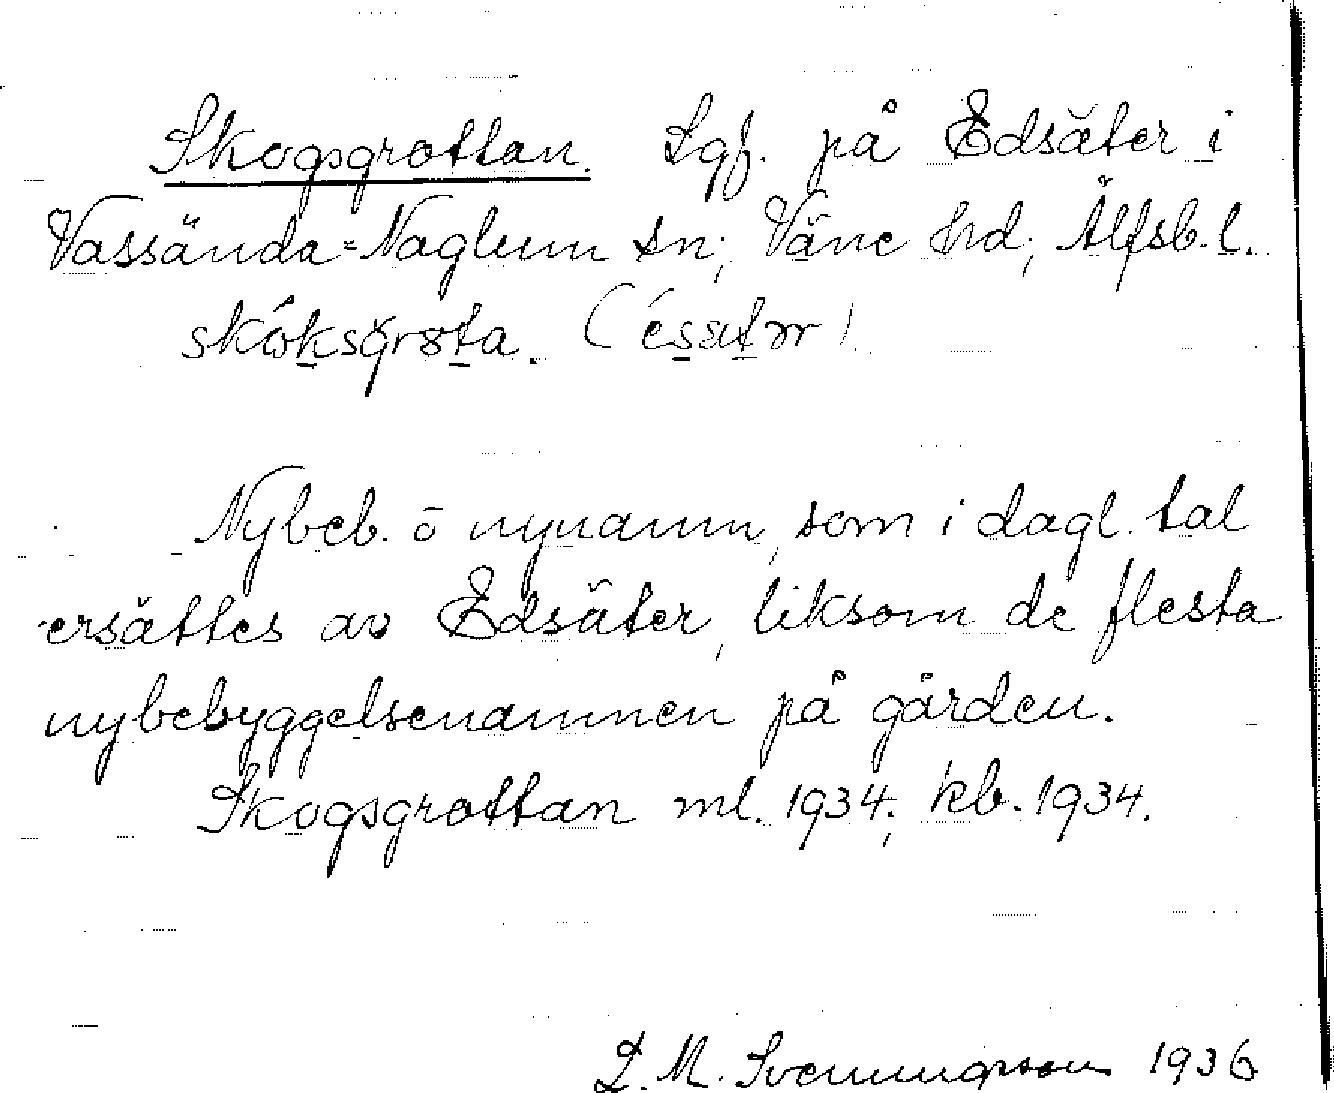 Skogsgrottan. Lgf. på Edsäter i
Vassända-Naglum sn; Väne hd; Älfsb. l.
Nybeb. o nynamn, som i dagl. tal
ersättes av Edsäter, liksom de flesta
nybebyggelsenamnen på gården.
Skogsgrottan ml. 1934; kb. 1934.
L. M. Svenungsson 1936